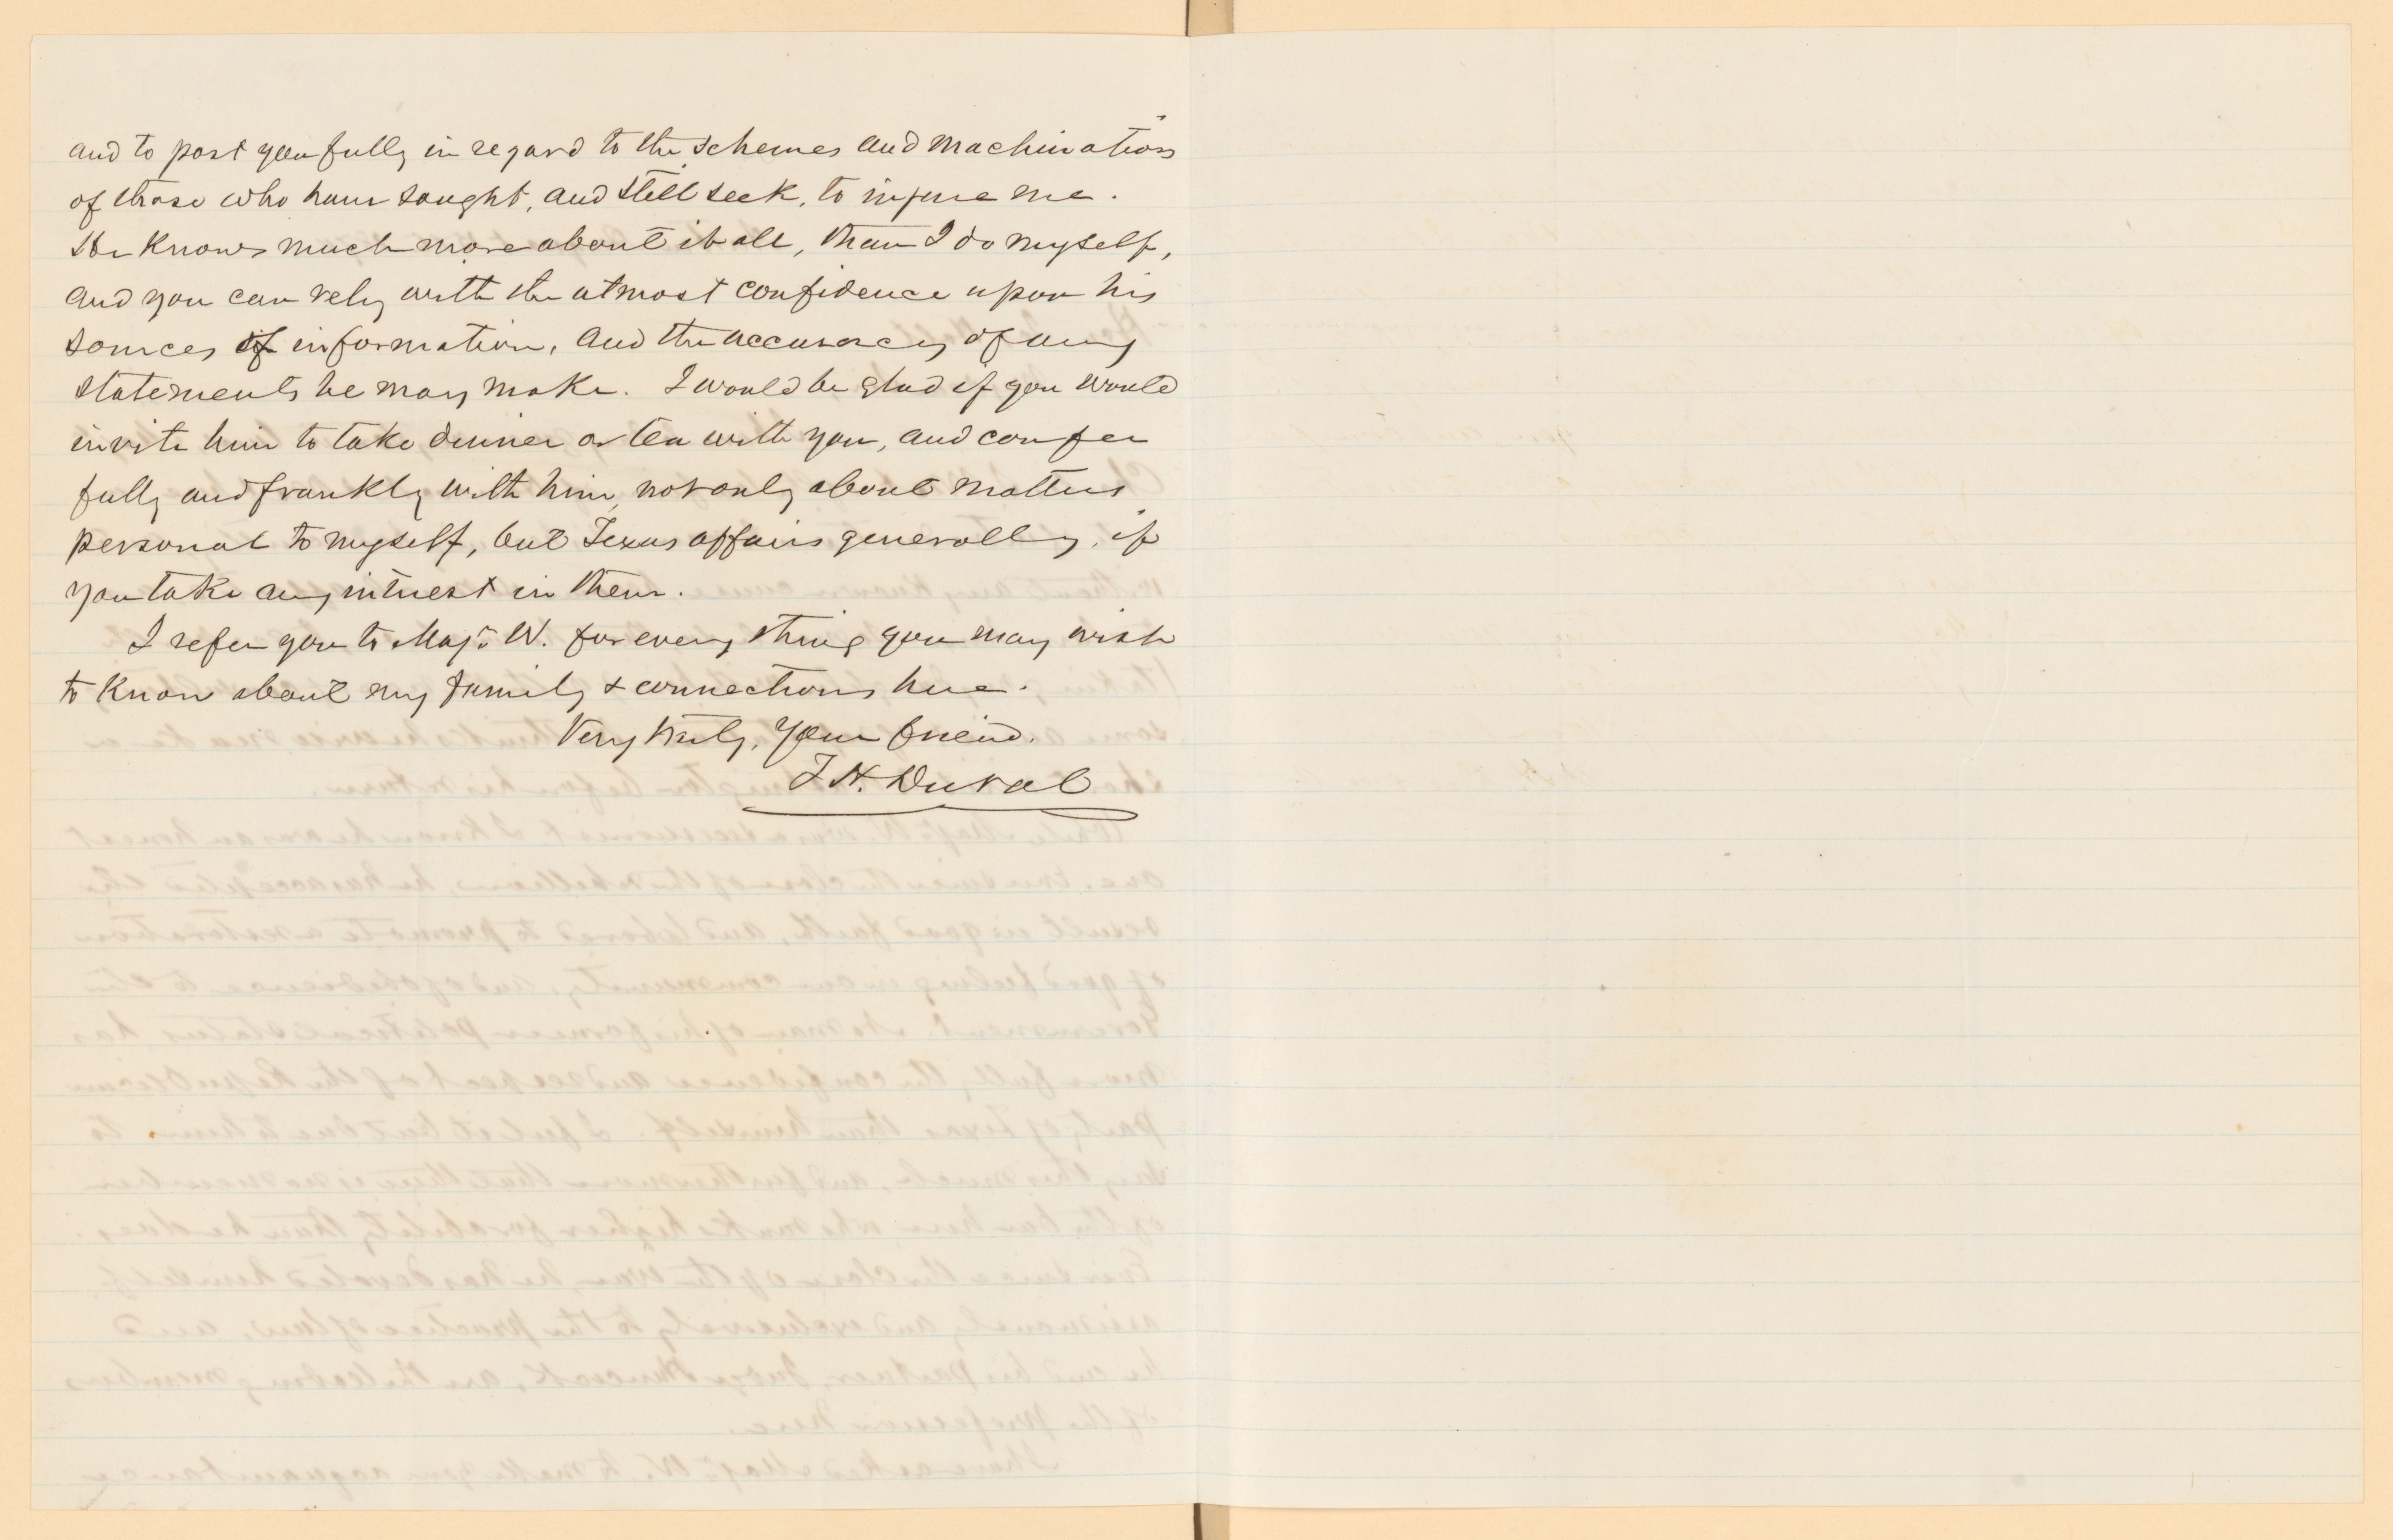 and to post you fully in regard to the schemes and machinations
of those who have sought, and still seek, to injure me.
He knows much more about it all, than I do myself,
and you can rely with the utmost confidence upon his
sources of information, and the accuracy of any
statements he may make. I would be glad if you would
invite him to take dinner or tea with you, and confer
fully and frankly with him, not only about matters
personal to myself, but Texas affairs generally, if
you take any interest in them.
I refer you to Majr W. for every thing you may wish
to know about my family & connections here.
Very truly, Your friend.
T. H. Duval